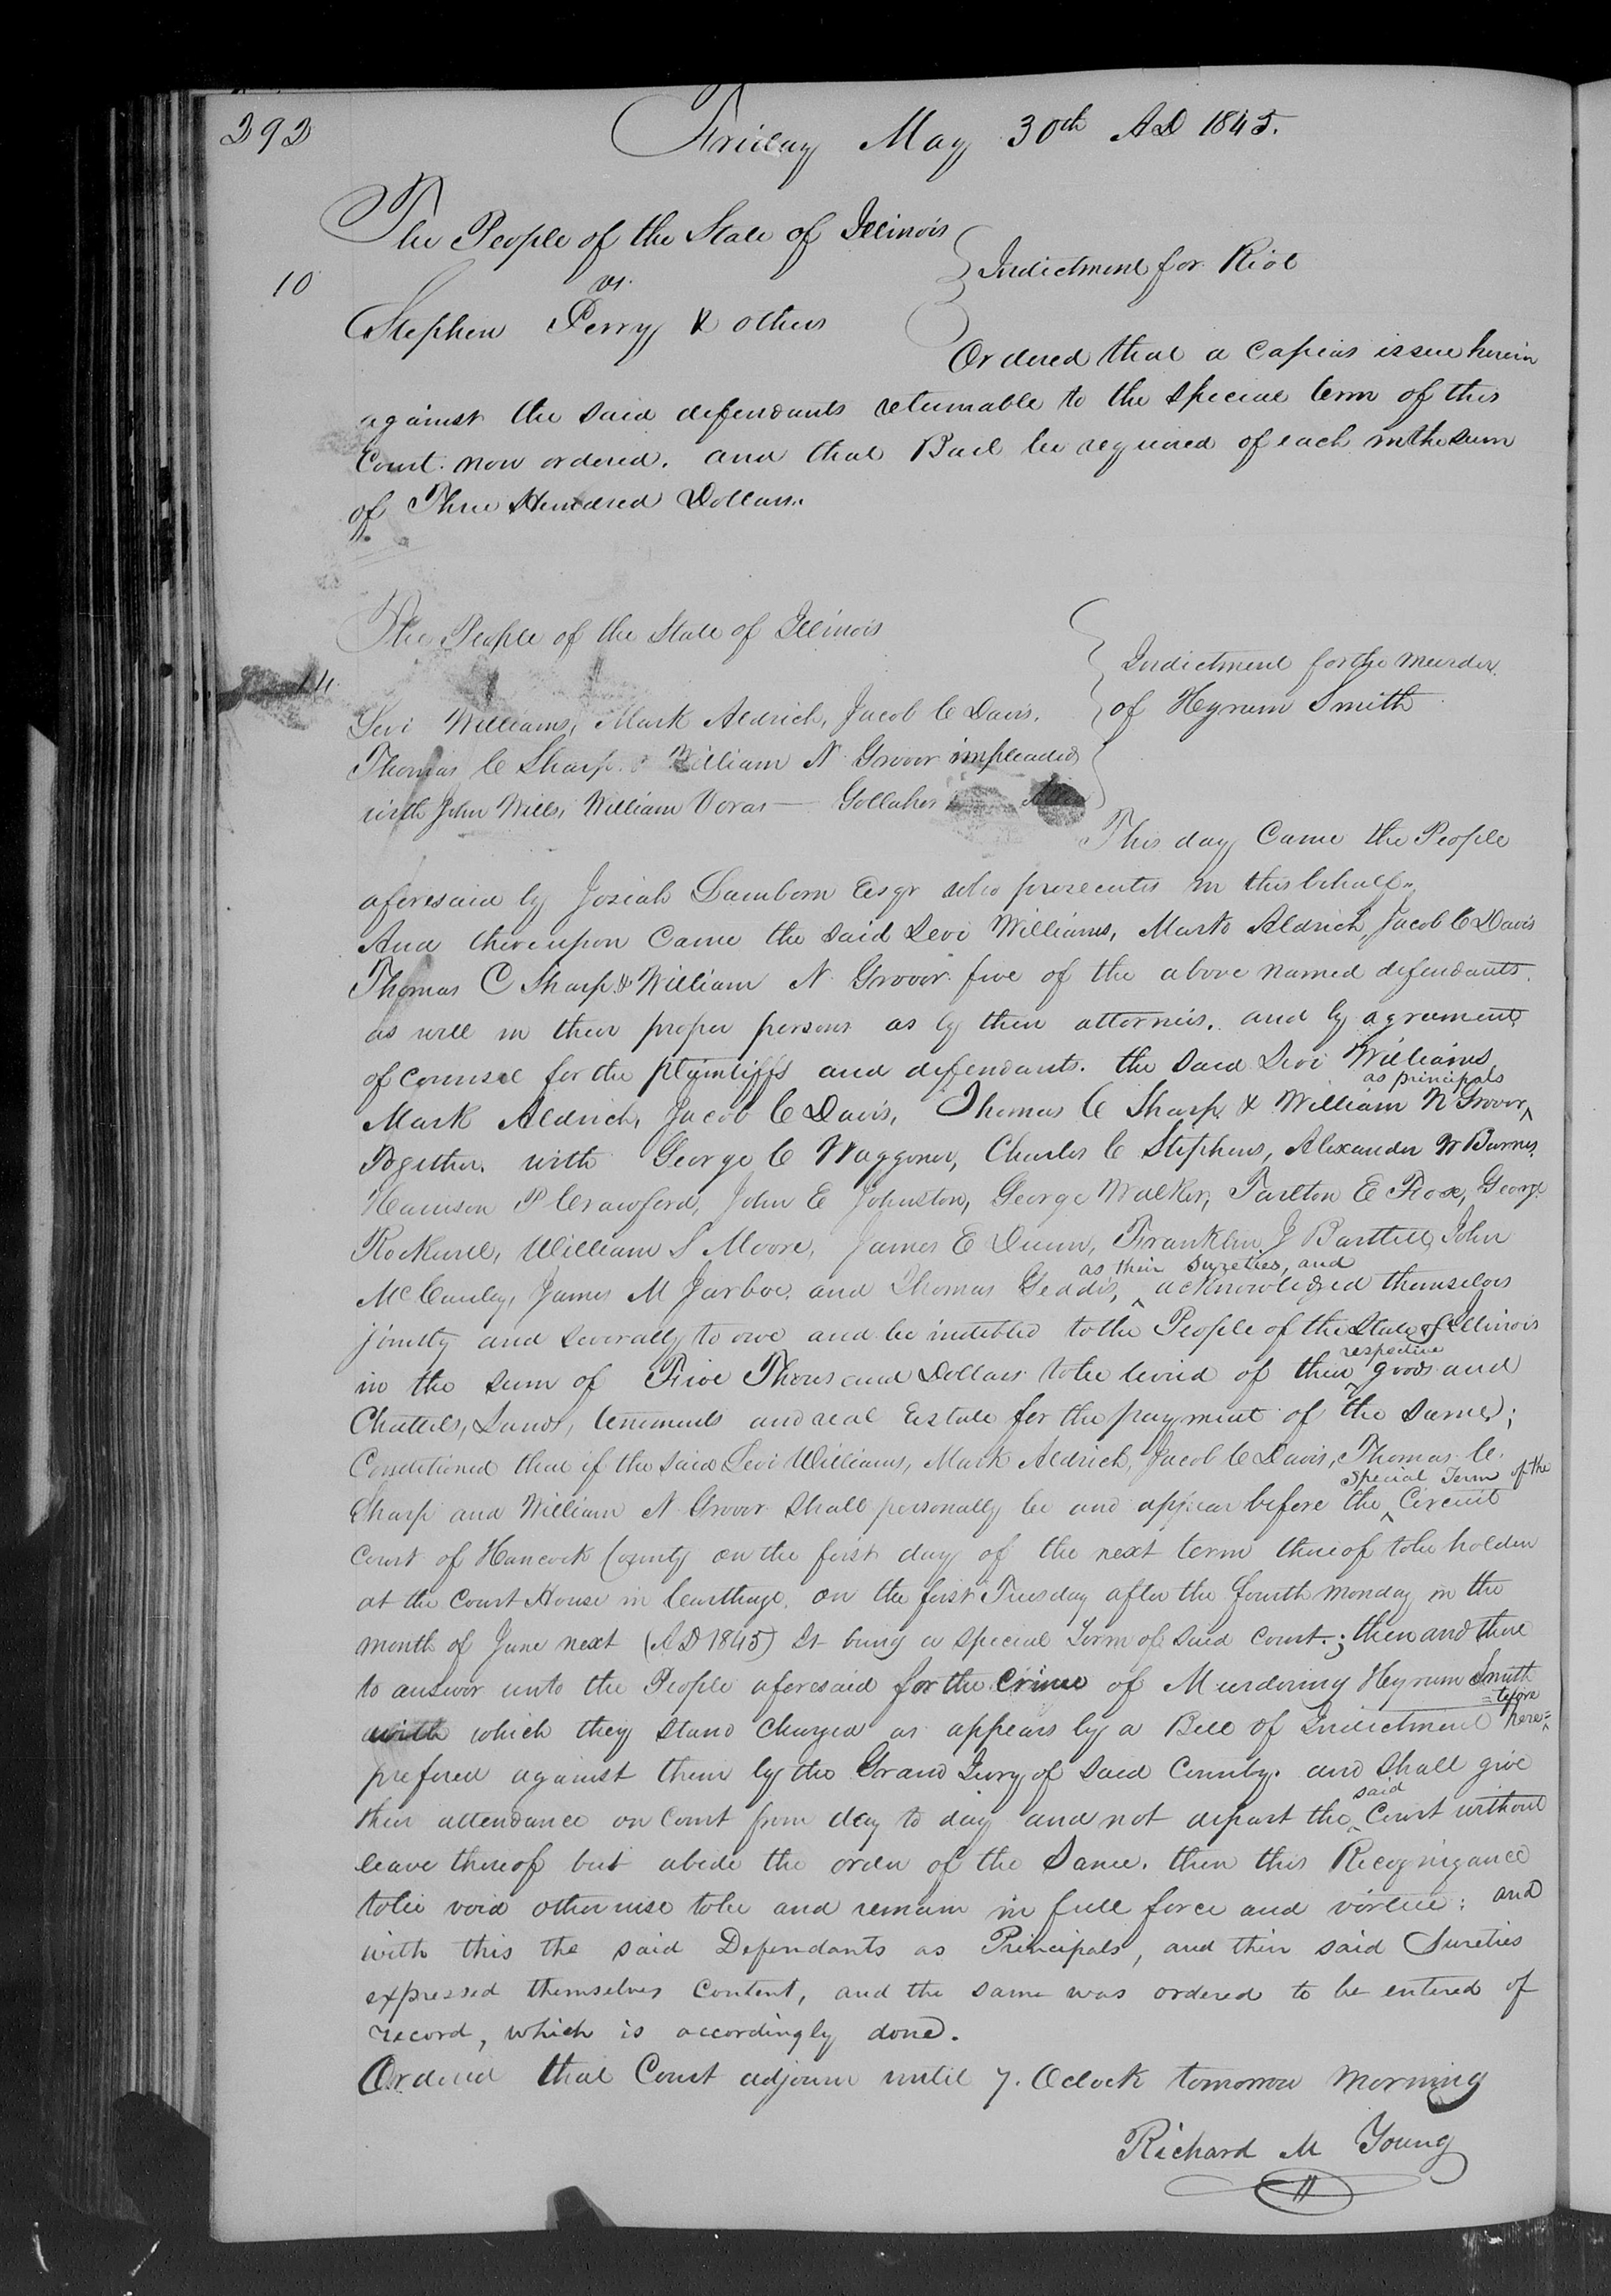 292
Friday May 30th AD 1845.
The People of the State of Illinois
10 vs. Indictment for Riot
Stephen Perry & others
Ordered that a Capias issue herein
against the said defendants returnable to the special term of this
Court now ordered. and that Bail be required of each in the sum
of Three Hundred Dollars.
The People of the State of Illinois
14 Indictment for the murder
of Hyrum Smith
Levi Williams, Mark Aldrich, Jacob C Davis,
Thomas C Sharp & William N Grover impleaded
with John Wills, William Voras — Gollaher Allen
This day Came the People
aforesaid by Josiah Lamborn Esqr who prosecutes in this behalf,
And thereupon Came the said Levi Williams, Mark Aldrich, Jacob C Davis
Thomas C Sharp & William N Grover five of the above named defendants.
as well in their proper persons as by their attornies. and by agreement
of counsel for the plaintiffs and defendants. the said Levi Williams
Mark Aldrich, Jacob C Davis, Thomas C Sharp & William N Grover ^ as principals
Together. with George C Waggoner, Charles C Stephens, Alexander W Barnes,
Harrison P Crawford, John E Johnston, George Walker, Tarlton E Fox, George
Rockwell, William S Moore, James E Dunn, Franklin J Bartlett, John
McCauley, James M Jarboe, and Thomas Geddis, ^ as their sureties, and acknowledged themselves
jointly and severally to owe and be indebted to the People of the State of Illinois
in the sum of Five Thousand Dollars to be levied of their ^ respective goods and
Chattels, Lands, tenements and real Estate for the payment of the same;
Conditioned that if the said Levi Williams, Mark Aldrich, Jacob C Davis, Thomas C.
Sharp and William N Grover shall personally be and appear before the ^ special Term of the Circuit
Court of Hancock County on the first day of the next term thereof to be holden
at the Court House in Carthage. on the first Tuesday after the fourth monday in the
month of June next (AD 1845) It being a special Term of said Court.; then and there
to answer unto the People aforesaid for the crime of Murdering Hyrum Smith
with which they stand Charged as appears by a Bill of Indictment here=^=tofore
prefered against them by the Grand Jury of said County. and shall give
their attendance on Court from day to day and not depart the ^ said Court without
leave thereof but abide the order of the Same. then this Recognizance
to be void otherwise to be and remain in full force and virtue: and
with this the said Defendants as Principals, and their said Sureties
expressed themselves content, and the same was ordered to be entered of
record, which is accordingly done.
Ordered that Court adjourn until 7. Oclock tomorrow morning
Richard M Young